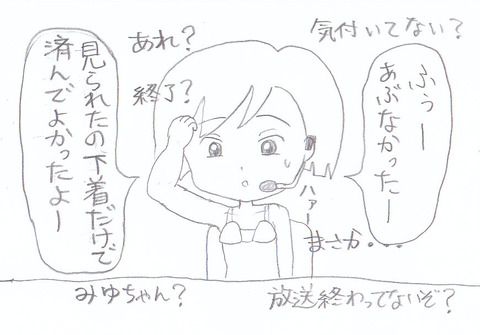 気付いてない?
あれ?
終了?
ふぅー
あぶなかったー
見られたの下着だけで
済んでよかったよー
ハァー
まさか・・・
みゆちゃん?
放送終わってないぞ?